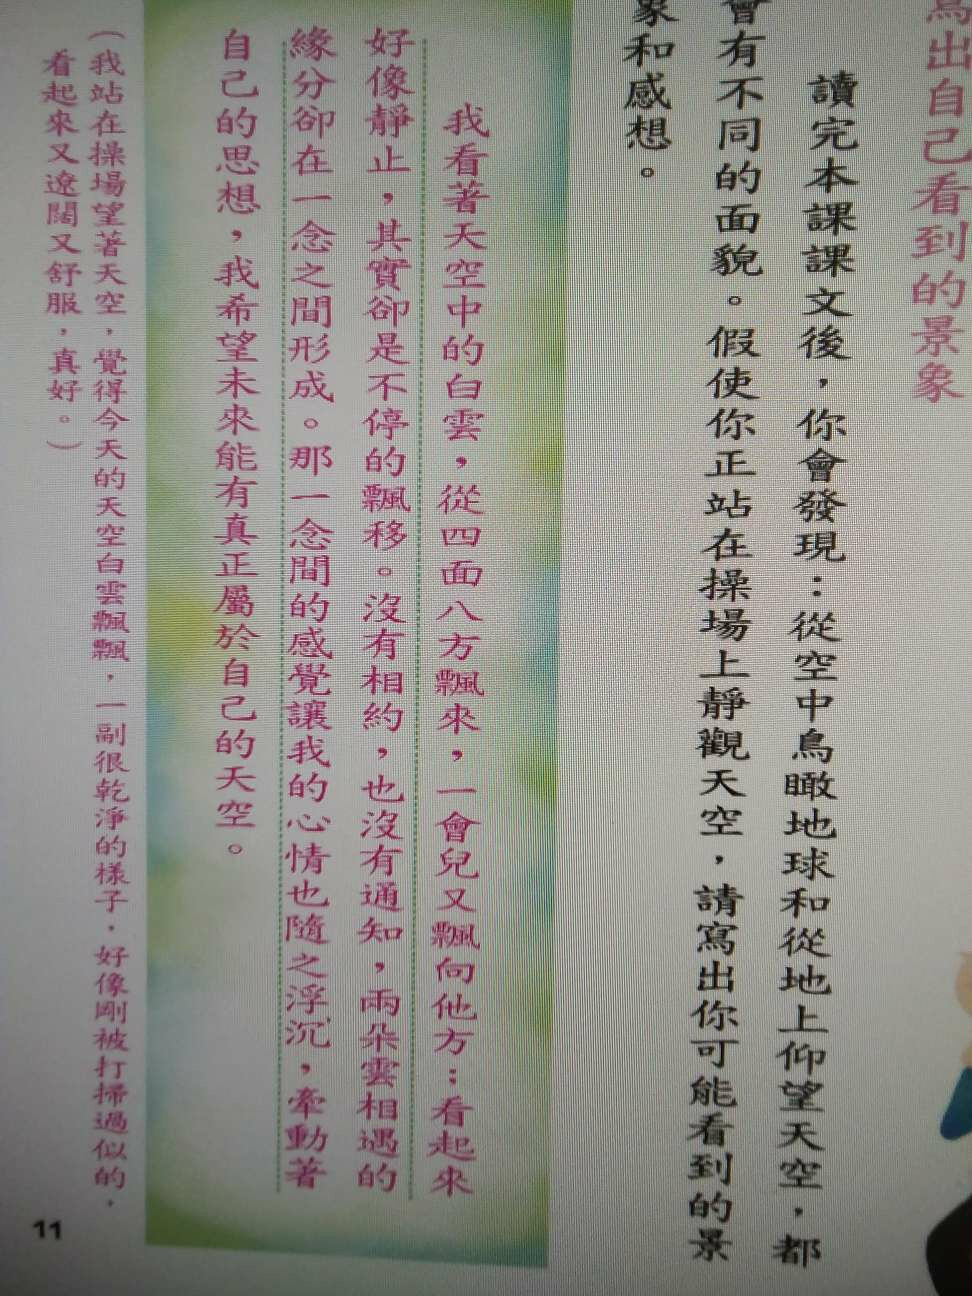 寫出自己看到的景象
讀完本課課文後，你會發現：從空中鳥瞰地球和從地上仰望天空，都
會有不同的面貌。假使你正站在操場上靜觀天空，請寫出你可能看到的景
象和感想。
我看著天空中的白雲，從四面八方飄來，一會兒又飄向他方；看起來
好像靜止，其實卻是不停的飄移。沒有相約，也沒有通知，兩朵雲相遇的
緣分卻在一念之間形成。那一念間的感覺讓我的心情也隨之浮沉，牽動著
自己的思想，我希望未來能有真正屬於自己的天空。
（我站在操場望著天空，覺得今天的天空白雲飄飄，一副很乾淨的樣子，好像剛被打掃過似的，
看起來又遼闊又舒服，真好。）
11